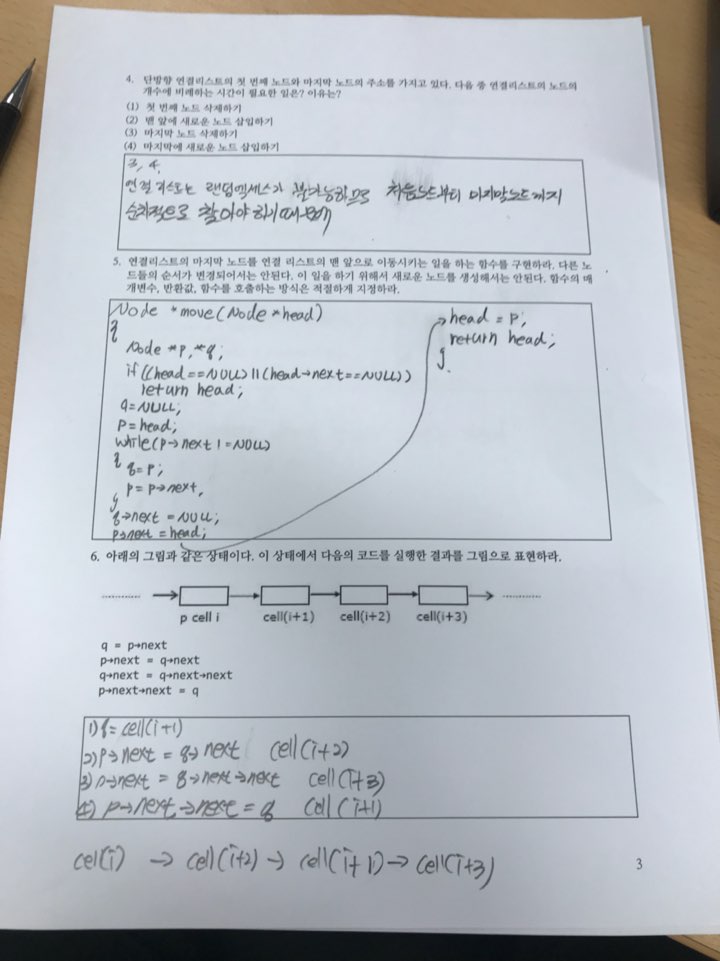 4. 단방향 연결리스트의 첫 번째 노드와 마지막 노드의 주소를 가지고 있다. 다음 중 연결리스트의 노드의
개수에 비례하는 시간이 필요한 일은? 이유는?
(1) 첫 번째 노드 삭제하기
(2) 맨 앞에 새로운 노드 삽입하기
(3) 마지막 노드 삭제하기
(4) 마지막에 새로운 노드 삽입하기
3, 4.
연결 리스트는 랜덤엑세스가 불가능하므로 처음노드부터 마지막노드까지
순차적으로 찾아야 하기 때문에
5. 연결리스트의 마지막 노드를 연결 리스트의 맨 앞으로 이동시키는 일을 하는 함수를 구현하라. 다른 노
드들의 순서가 변경되어서는 안된다. 이 일을 하기 위해서 새로운 노드를 생성해서는 안된다. 함수의 매
개변수, 반환값, 함수를 호출하는 방식은 적절하게 지정하라.
Node *move(Node *head)
{
Node *p, *q;
if((head==NULL)||(head→next==NULL))
return head;
q=NULL;
p=head;
while(p→next != NULL)
{ q=p;
p=p→next,
}
q→next = NULL;
p→next = head;
head = p;
return head;
}.
6. 아래의 그림과 같은 상태이다. 이 상태에서 다음의 코드를 실행한 결과를 그림으로 표현하라.
p cell i cell(i+1) cell(i+2) cell(i+3)
q = p→next
p→next = q→next
q→next = q→next→next
p→next→next = q
1) q= cell(i+1)
2) p→next = q→next cell(i+2)
3) →next = q→next→next cell(i+3)
4) p→next→next = q cell(i+1)
cell(i) → cell(i+2) → cell(i+1) → cell(i+3)
3